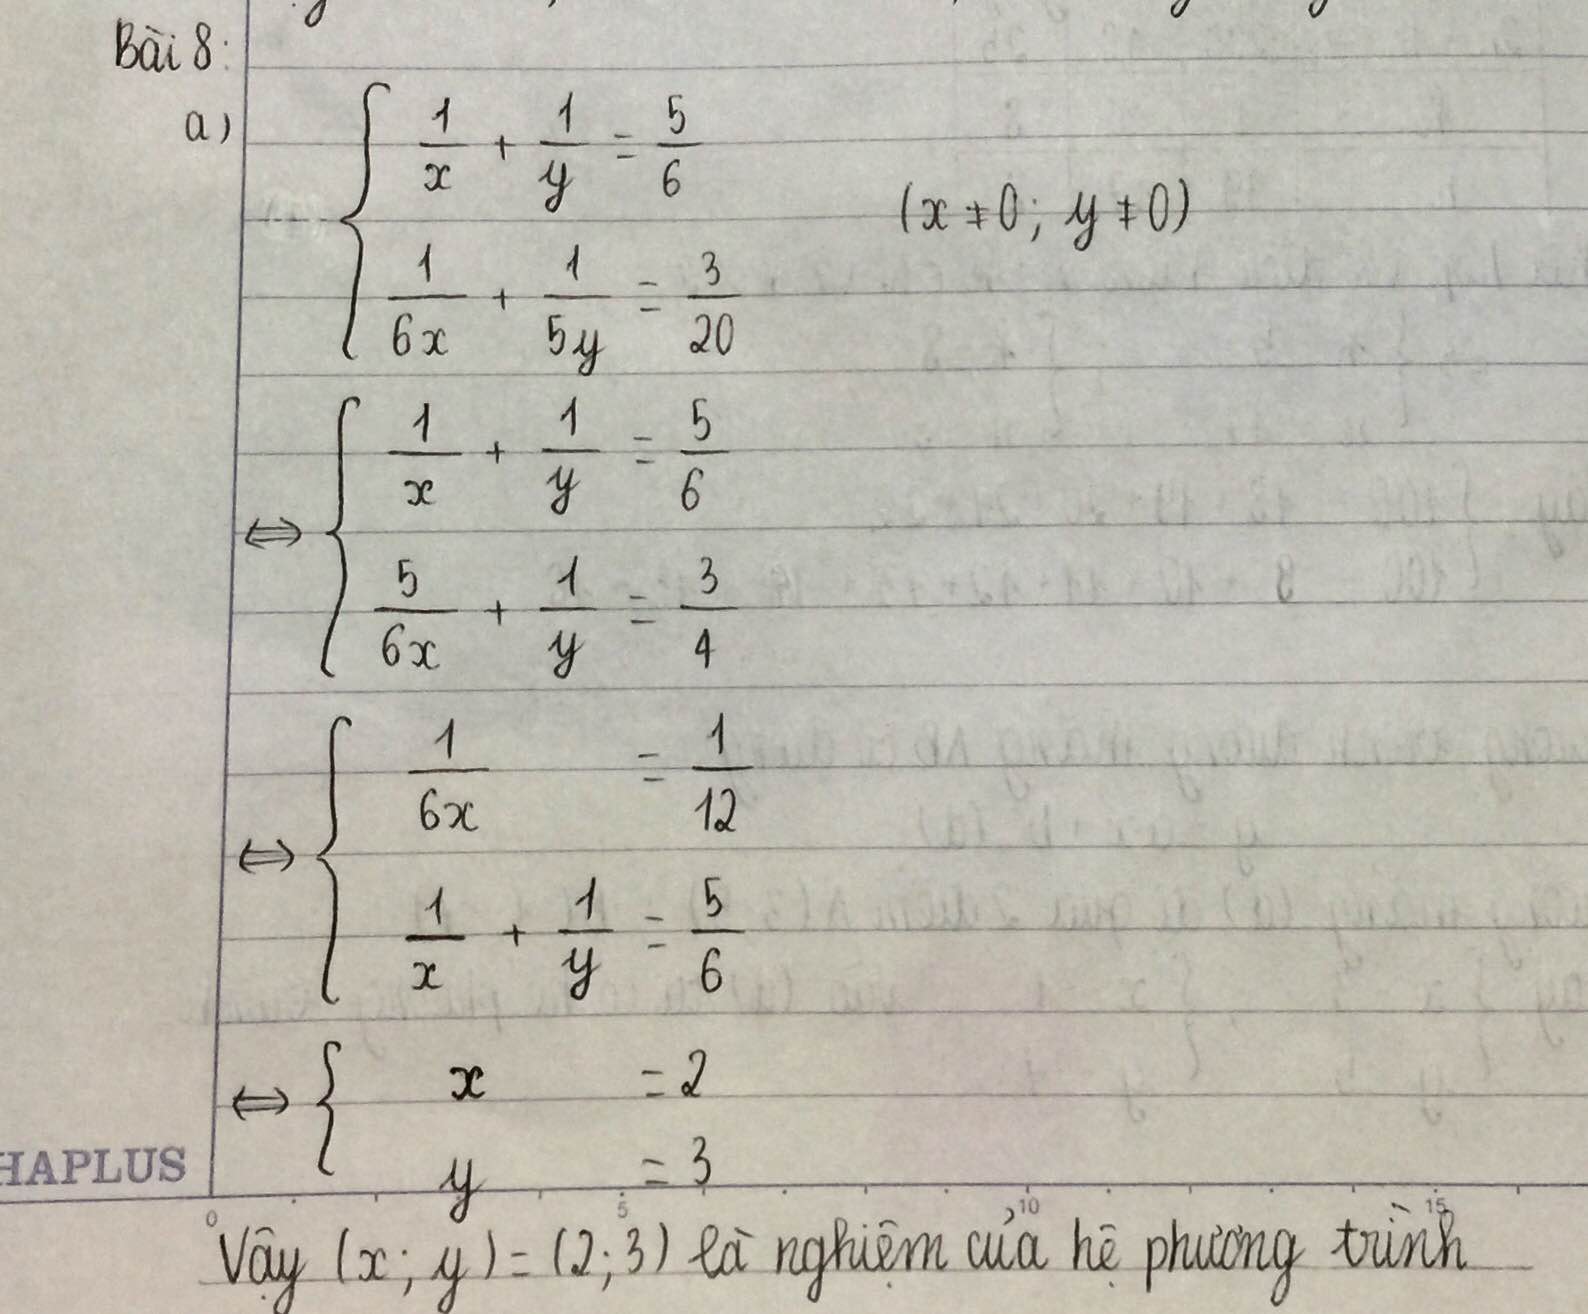 Bài 8:
a) { 1/x + 1/y = 5/6
(x ≠ 0; y ≠ 0)
1/6x + 1/5y = 3/20
⇔ { 1/x + 1/y = 5/6
5/6x + 1/y = 3/4
⇔ { 1/6x = 1/12
1/x + 1/y = 5/6
⇔ { x = 2
y = 3
HAPLUS
0 5 10 15
Vậy (x; y) = (2; 3) là nghiệm của hệ phương trình